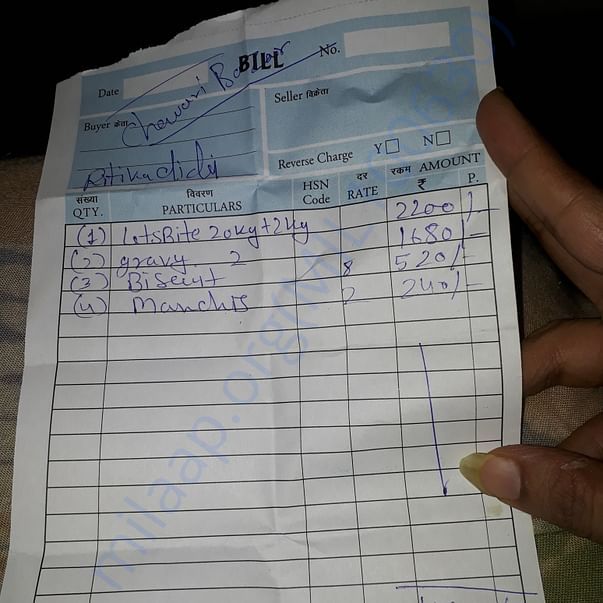 BILL
No.
Date
Chawari Bazar
Buyer क्रेता
Seller विक्रेता
Ritika didi
Reverse Charge Y N
संख्या विवरण HSN दर रकम AMOUNT
QTY. PARTICULARS Code RATE ₹ P.
(1) LetsBite 20kg+2kg 2200/-
(2) gravy 2 1680/-
(3) Biscuit 8 520/-
(4) 2 240/-
milaap.org